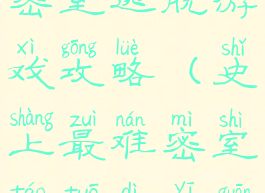 密室逃脱游
xì gōng lüè shǐ
戏攻略(史
shàng zuì nán mì shì
上最难密室